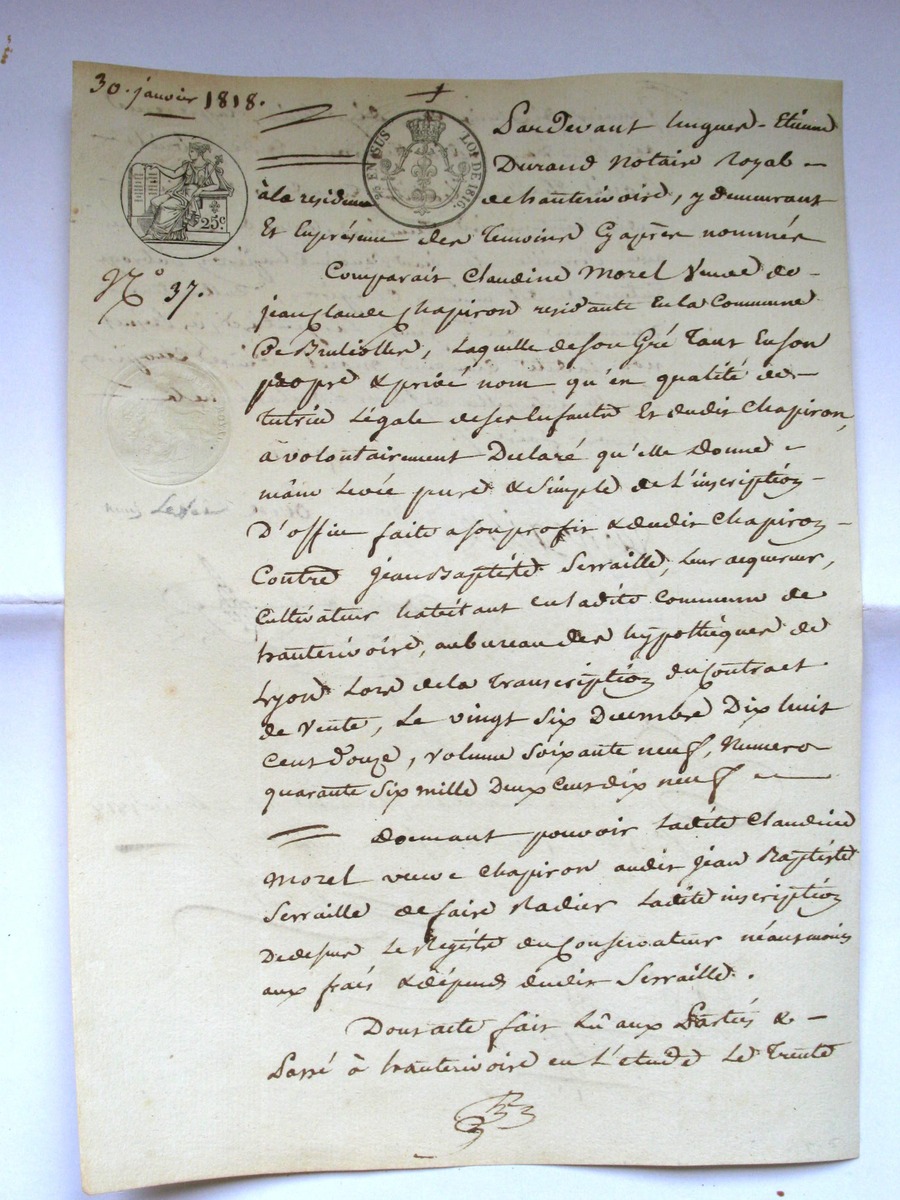 30. janvier 1818.
EN SUS LOI DE 1816.
25c.
N.o 37.
Pardevant hugues-Etienne
Durand Notaire Royal -
à la residence de hauterivoire, y demeurant
Et En présence des Temoins Cy après nommés
Comparait Claudine Morel Veuve de -
jean Claude Chapiron residante En la Commune
De Brullolles, Laquelle de son Gré Tant En son
propre & privé nom qu'en qualité de -
tutrice Légale de ses Enfants Et dudit Chapiron,
à volontairement Declaré qu'elle Donne -
main Levée pure & Simple de L'inscription -
D'office faite a son profit & dudit Chapiron -
Contre Jean Baptiste Serraille, Leur acquereur,
Cultivateur habitant en Ladite Commune de
hauterivoire, au bureau des hypothèques de
Lyon Lors de la Transcription du Contract
de Vente, Le vingt Six Decembre Dix huit
Cent Douze, volume Soixante neuf, Numero
quarante Six mille Deux Cent dix neuf -
Donnant pouvoir Ladite Claudine
Morel veuve Chapiron audit Jean Baptiste
Serraille de faire Radier Ladite inscription
De dessus Le Registre du Conservateur néantmoins
aux frais & dépends dudit Serraille.
Dont acte fait Lû aux Parties & -
Passé à hauterivoire en L'etude Le Trente